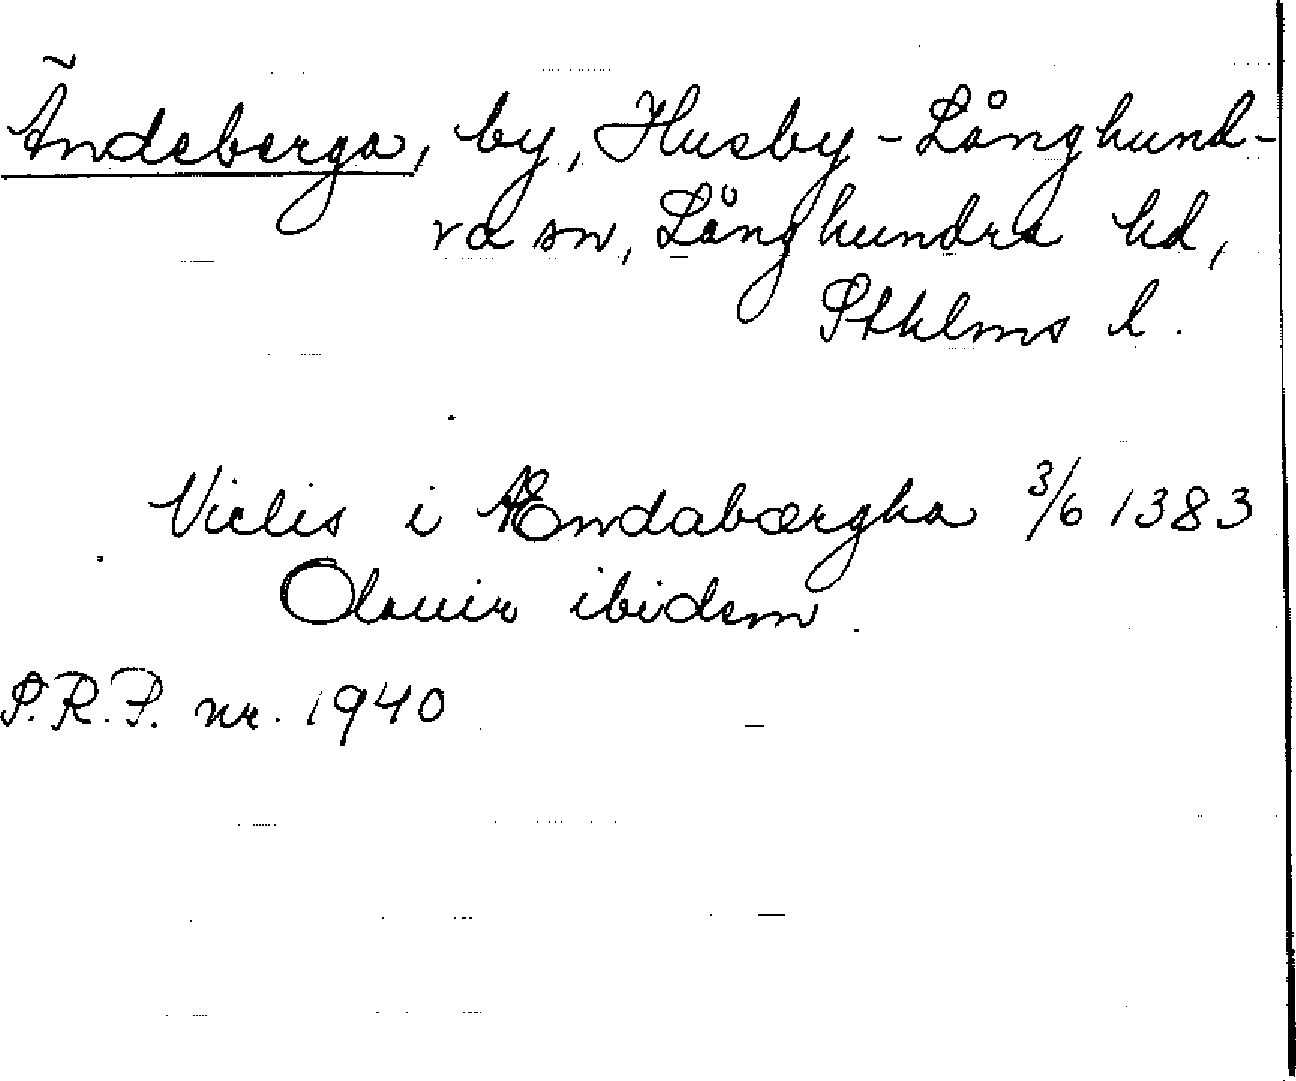 Ändeberga, by, Husby-Långhund-
ra sn, Långhundra hd,
Sthlms l.
Niclis i Ændabærgha 3/6 1383
Olauir ibidem
S.R.P. nr. 1940